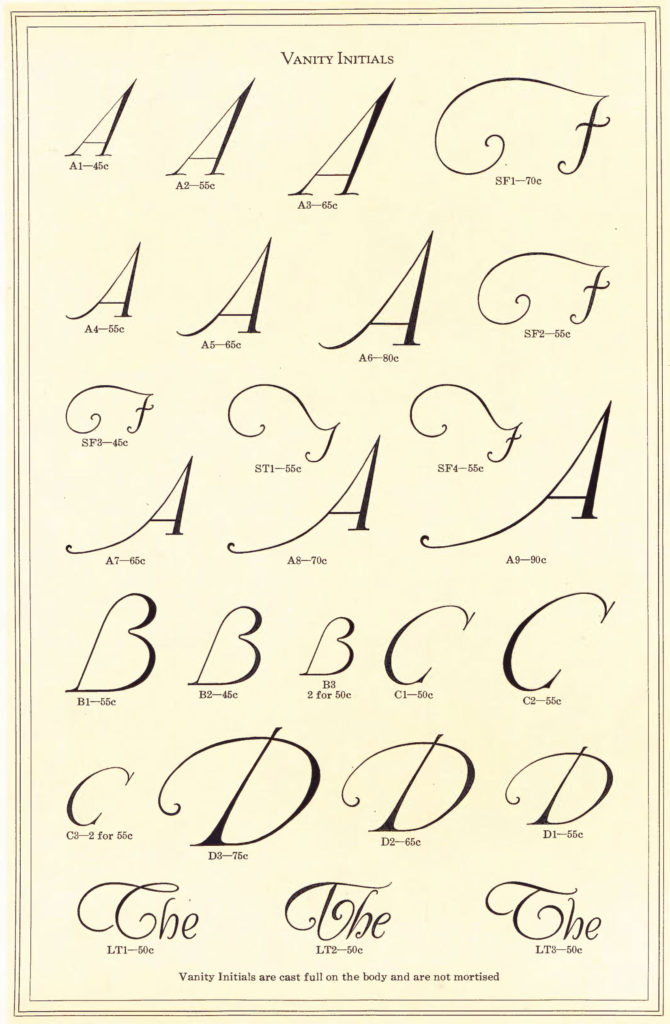 Vanity Initials
A A A F
A1—45c A2—55c A3—65c SF1—70c
A A A F
A4—55c A5—65c A6—80c SF2—55c
F T F
SF3—45c ST1—55c SF4—55c
A A A
A7—65c A8—70c A9—90c
B B B C C
B1—55c B2—45c B3 C1—50c C2—55c
2 for 50c
C D D D
C3—2 for 55c D3—75c D2—65c D1—55c
The The The
LT1—50c LT2—50c LT3—50c
Vanity Initials are cast full on the body and are not mortised